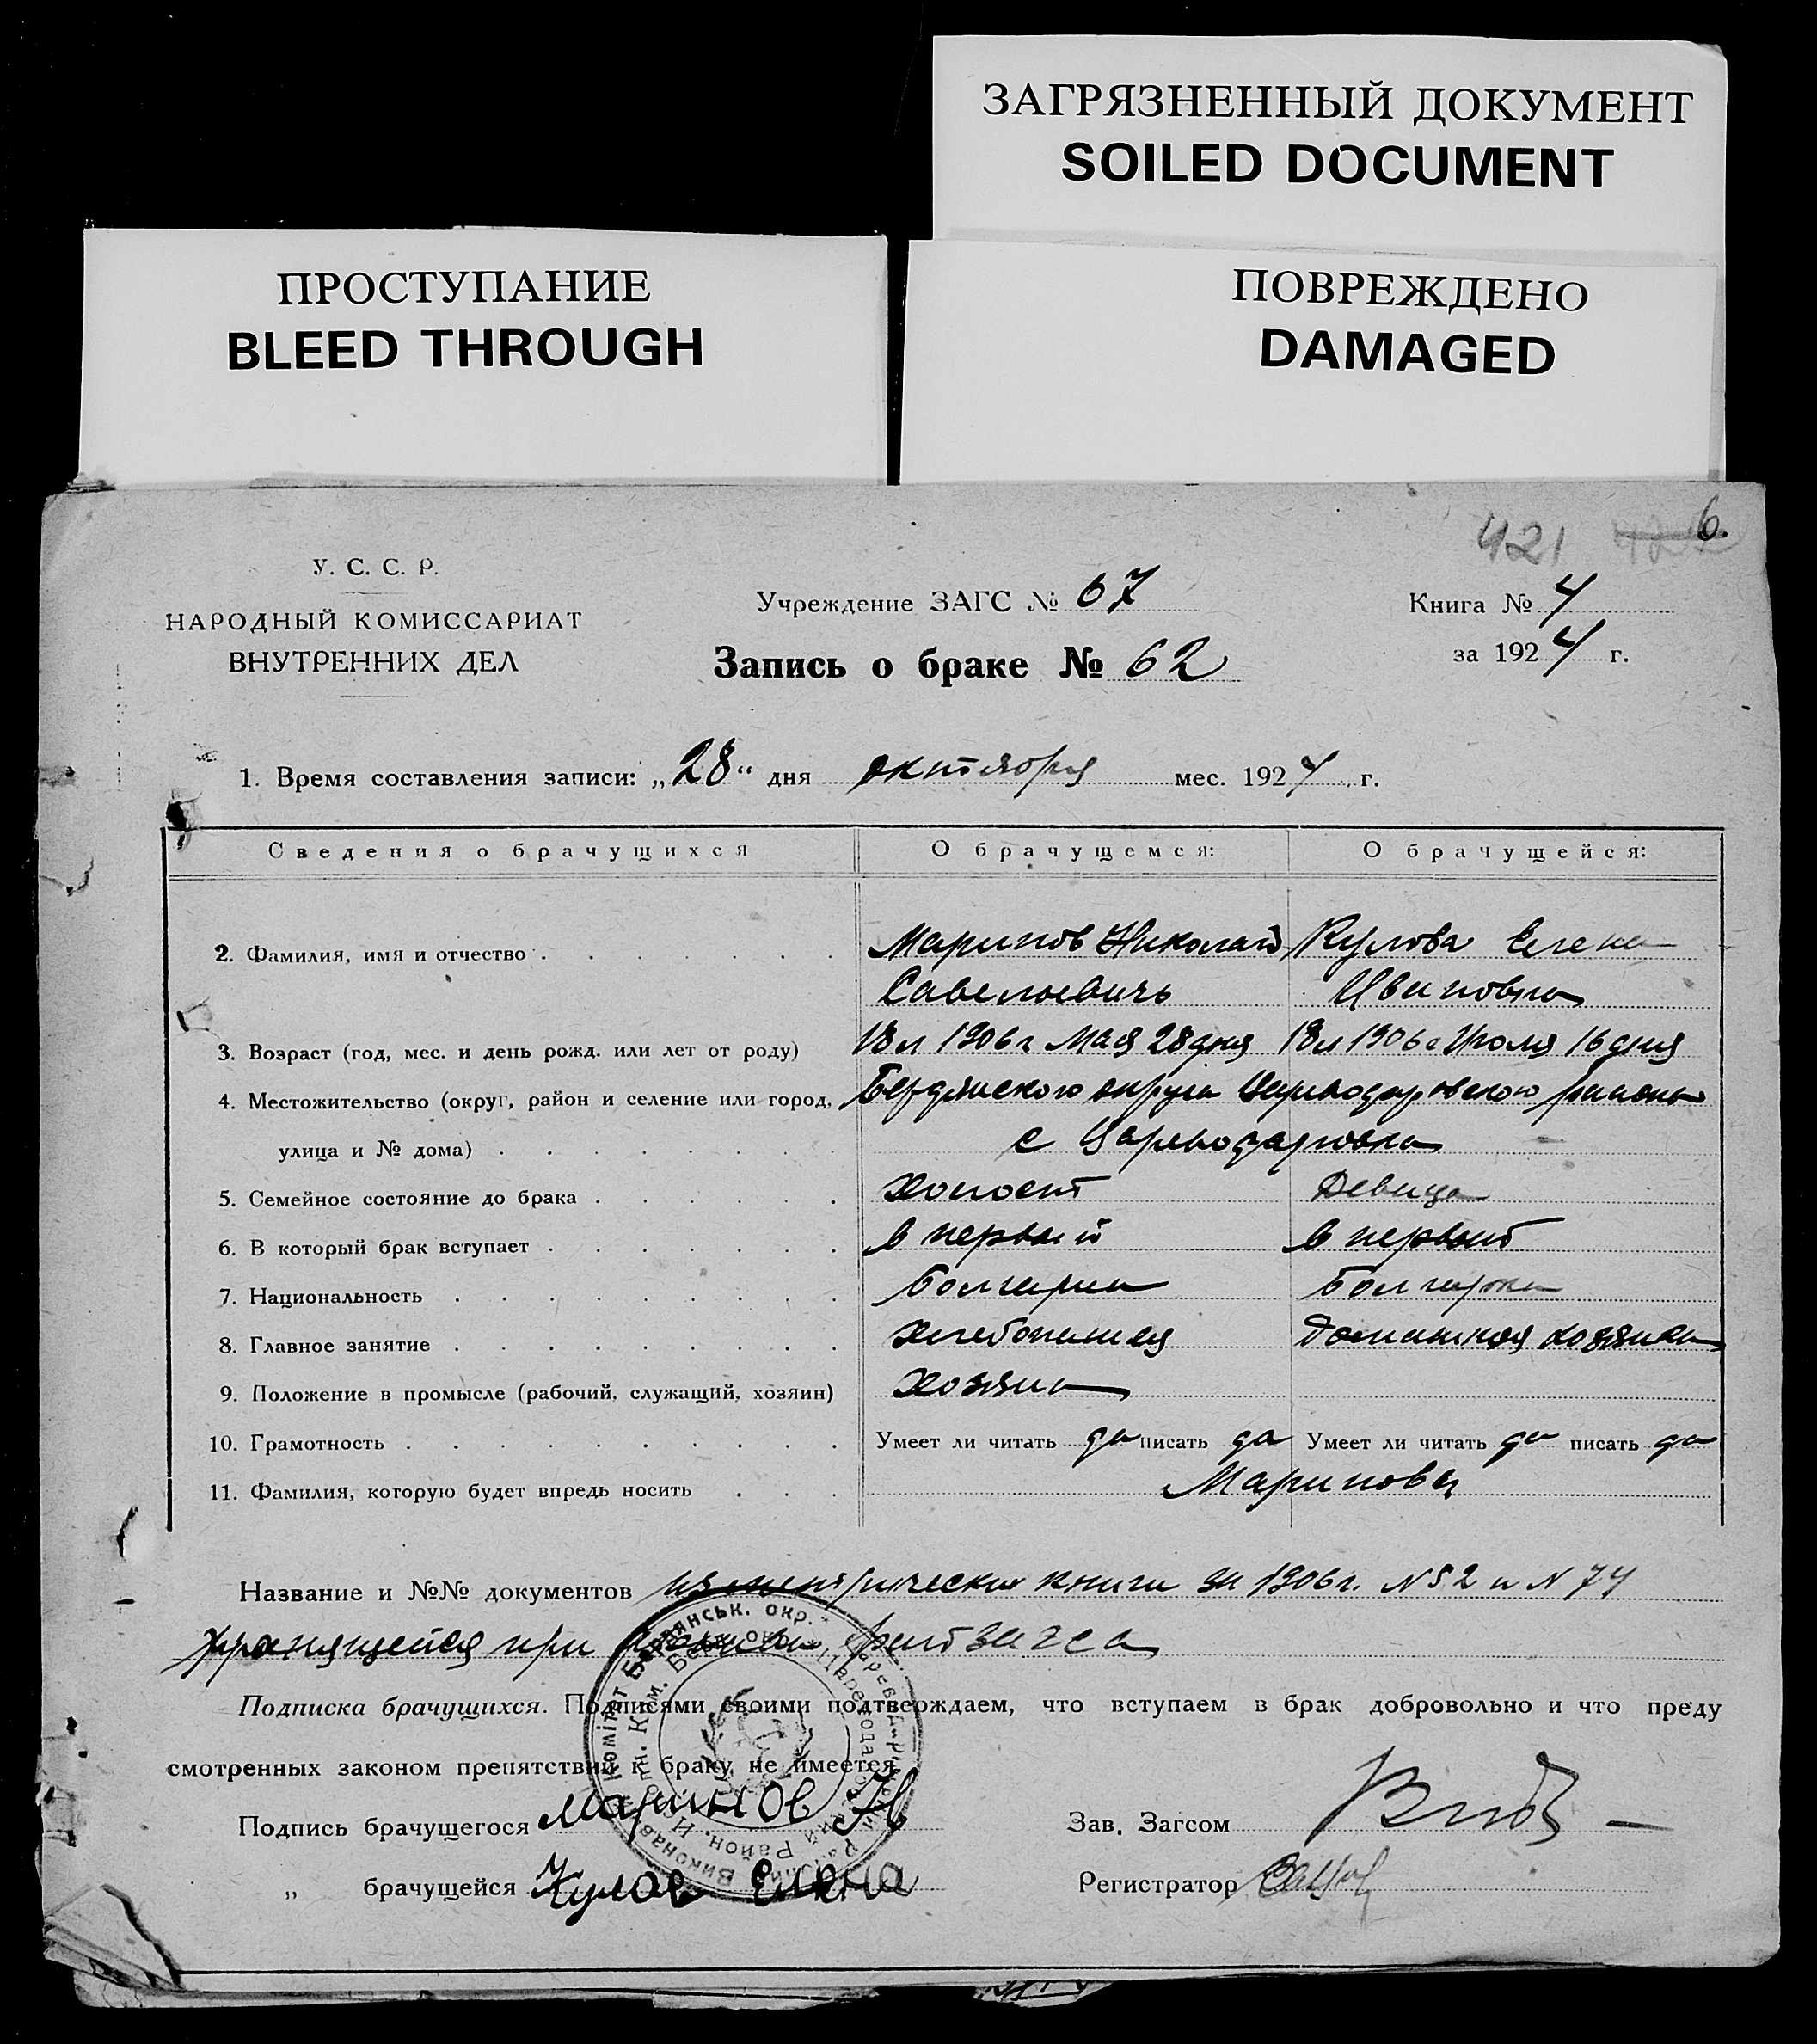 ЗАГРЯЗНЕННЫЙ ДОКУМЕНТ
SOILED DOCUMENT
ПРОСТУПАНИЕ
BLEED THROUGH
ПОВРЕЖДЕНО
DAMAGED
421 6.
У. С. С. Р.
НАРОДНЫЙ КОМИССАРИАТ
ВНУТРЕННИХ ДЕЛ
Учреждение ЗАГС № 67
Запись о браке № 62
Книга № 4
за 1924 г.
1. Время составления записи: „28" дня октября мес. 1924 г.
Сведения о брачущихся О брачущемся: О брачущейся:
2. Фамилия, имя и отчество Маринов Николай Кулова Елена
Савельевичь Ивановна
3. Возраст (год, мес. и день рожд. или лет от роду) 18 л 1906 г Мая 28 дня 18 л 1906 г Июля 16 дня
4. Местожительство (округ, район и селение или город, Бердянского округа Цареводаровского района
улица и № дома) с Цареводаровка
5. Семейное состояние до брака холост Девица
6. В который брак вступает в первый в первый
7. Национальность болгарин болгарка
8. Главное занятие хлебопашец домашняя хозяйка
9. Положение в промысле (рабочий, служащий, хозяин) хозяин
10. Грамотность Умеет ли читать да писать да Умеет ли читать да писать да
11. Фамилия, которую будет впредь носить Мариновы
Название и №№ документов из метрическия книги за 1906 г. N 52 и N 74
хранящейся при райзагса
Подписка брачущихся. Подписями своими подтверждаем, что вступаем в брак добровольно и что преду
смотренных законом препятствий к браку не имеется.
Подпись брачущегося Маринов Зав. Загсом
„ брачущейся Кулов Елена Регистратор